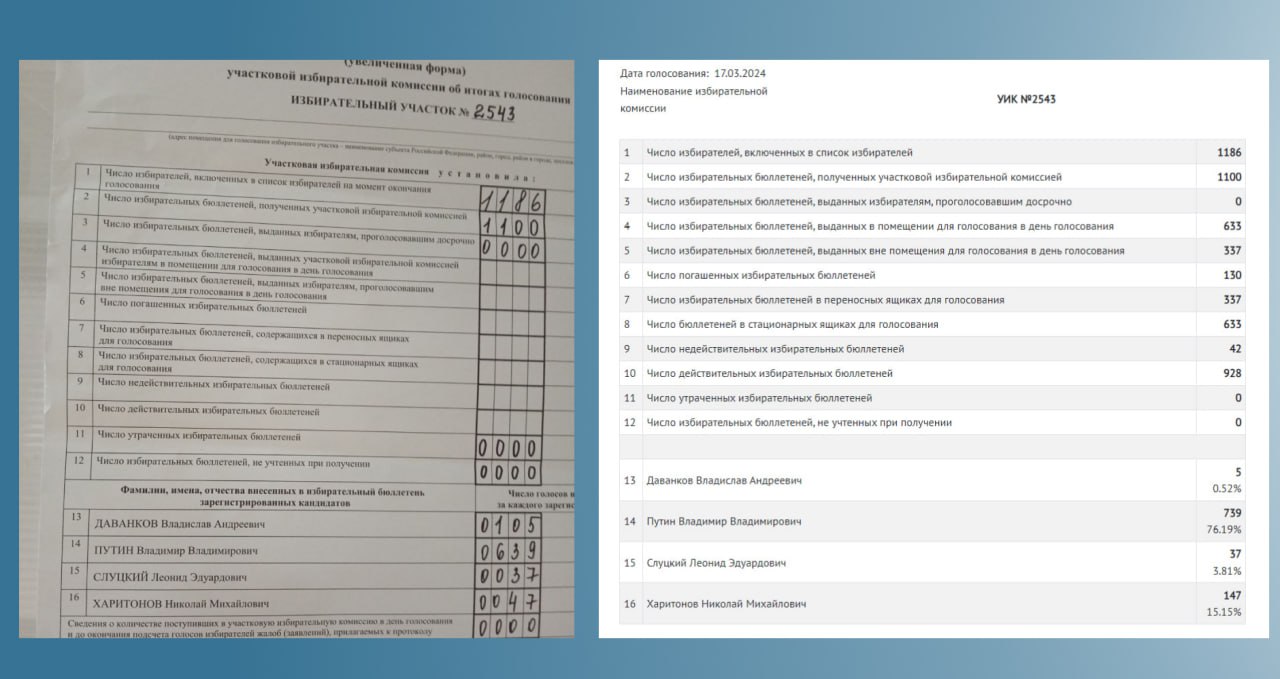 (увеличенная форма)
участковой избирательной комиссии об итогах голосования
ИЗБИРАТЕЛЬНЫЙ УЧАСТОК № 2543
(адрес помещения для голосования избирательного участка – наименование субъекта Российской Федерации, район, город, район в городе,
Участковая избирательная комиссия установила:
1 Число избирателей, включенных в список избирателей на момент окончания
голосования 1186
2 Число избирательных бюллетеней, полученных участковой избирательной комиссией 1100
3 Число избирательных бюллетеней, выданных избирателям, проголосовавшим досрочно 0000
4 Число избирательных бюллетеней, выданных участковой избирательной комиссией
избирателям в помещении для голосования в день голосования
5 Число избирательных бюллетеней, выданных избирателям, проголосовавшим
вне помещения для голосования в день голосования
6 Число погашенных избирательных бюллетеней
7 Число избирательных бюллетеней, содержащихся в переносных ящиках
для голосования
8 Число избирательных бюллетеней, содержащихся в стационарных ящиках
для голосования
9 Число недействительных избирательных бюллетеней
10 Число действительных избирательных бюллетеней
11 Число утраченных избирательных бюллетеней 0000
12 Число избирательных бюллетеней, не учтенных при получении 0000
Фамилии, имена, отчества внесенных в избирательный бюллетень
зарегистрированных кандидатов
Число голосов
за каждого
13 ДАВАНКОВ Владислав Андреевич 0105
14 ПУТИН Владимир Владимирович 0639
15 СЛУЦКИЙ Леонид Эдуардович 0037
16 ХАРИТОНОВ Николай Михайлович 0047
Сведения о количестве поступивших в участковую избирательную комиссию в день голосования
и до окончания подсчета голосов избирателей жалоб (заявлений), прилагаемых к протоколу 0000
Дата голосования: 17.03.2024
Наименование избирательной
комиссии
УИК №2543
1 Число избирателей, включенных в список избирателей 1186
2 Число избирательных бюллетеней, полученных участковой избирательной комиссией 1100
3 Число избирательных бюллетеней, выданных избирателям, проголосовавшим досрочно 0
4 Число избирательных бюллетеней, выданных в помещении для голосования в день голосования 633
5 Число избирательных бюллетеней, выданных вне помещения для голосования в день голосования 337
6 Число погашенных избирательных бюллетеней 130
7 Число избирательных бюллетеней в переносных ящиках для голосования 337
8 Число бюллетеней в стационарных ящиках для голосования 633
9 Число недействительных избирательных бюллетеней 42
10 Число действительных избирательных бюллетеней 928
11 Число утраченных избирательных бюллетеней 0
12 Число избирательных бюллетеней, не учтенных при получении 0
13 Даванков Владислав Андреевич 5
0.52%
14 Путин Владимир Владимирович 739
76.19%
15 Слуцкий Леонид Эдуардович 37
3.81%
16 Харитонов Николай Михайлович 147
15.15%